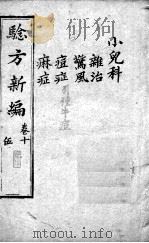 小兒科
雜治
驚風
痘症
痳症
騐方新編
卷十
伍